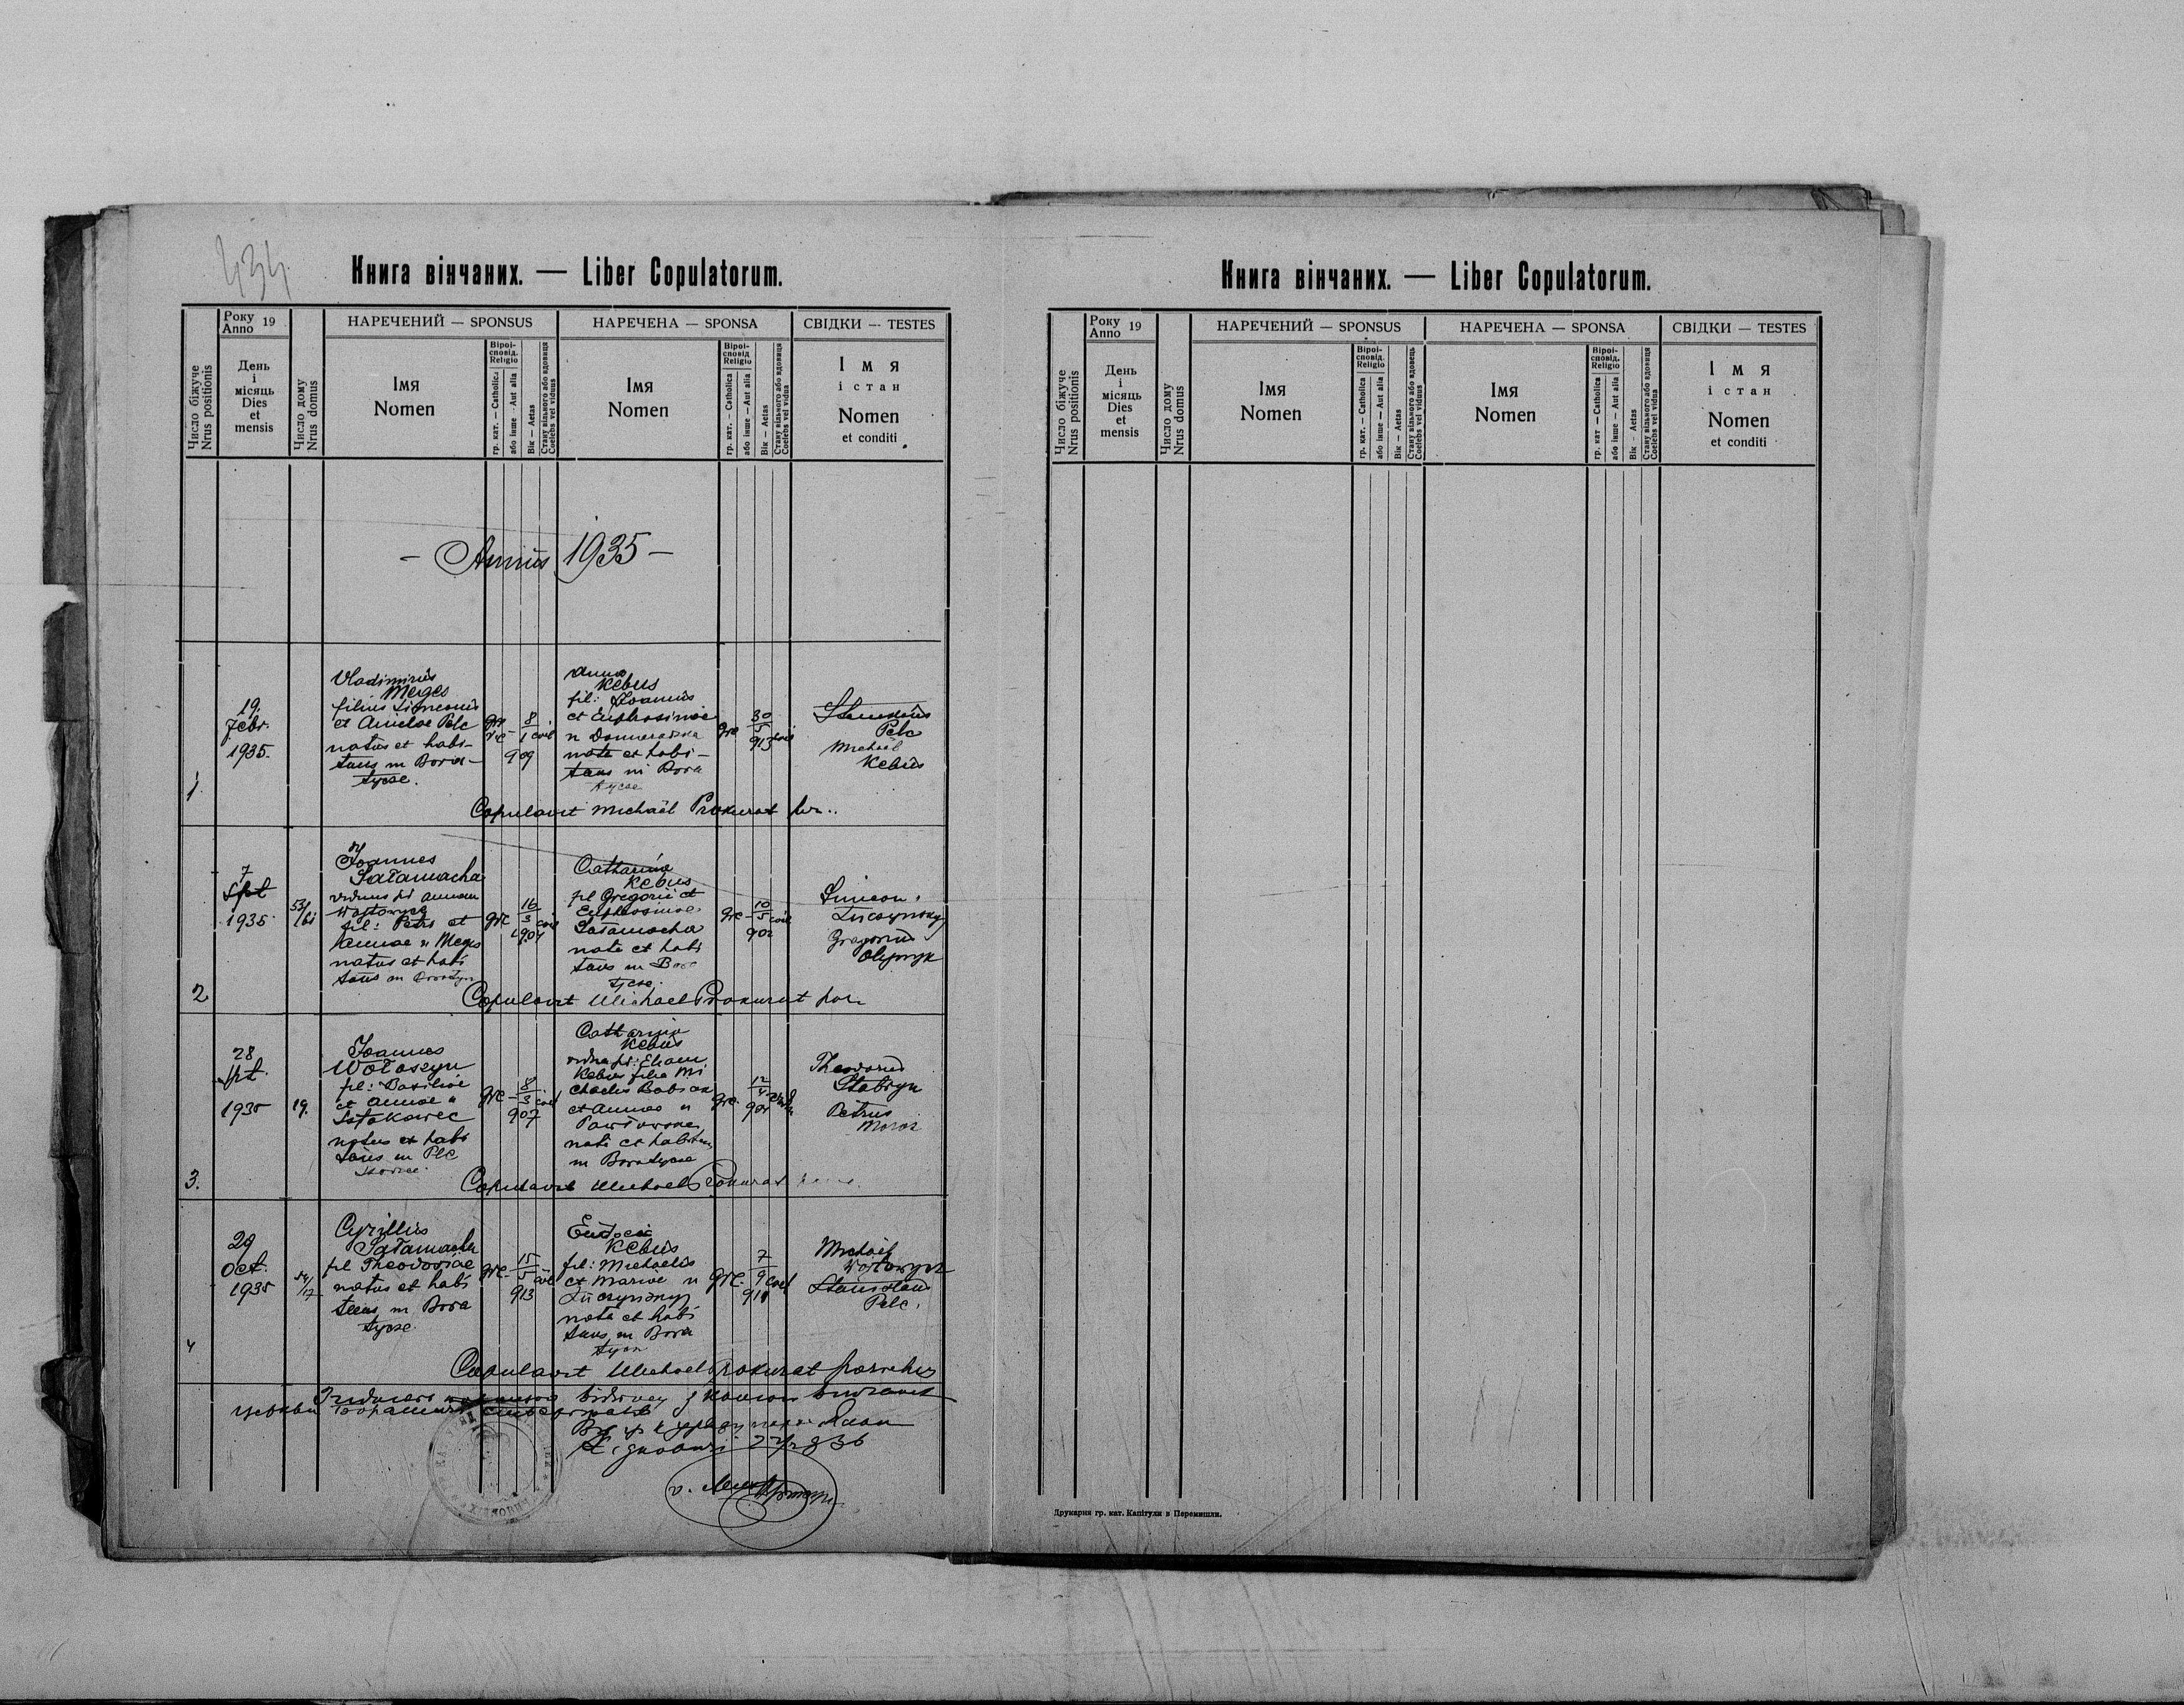 434
Книга вінчаних. — Liber Copulatorum.
Число біжуче
Nrus positionis
Року
Anno 19
День
і
місяць
Dies
et
mensis
Число дому
Nrus domus
НАРЕЧЕНИЙ — SPONSUS
Імя
Nomen
Віроі-
сповід.
Religio
гр. кат. — Catholica
або інше — Aut alia
Вік — Aetas
Стану вільного або вдовиця
Coelebs vel viduus
НАРЕЧЕНА — SPONSA
Імя
Nomen
Віроі-
сповід
Religio
гр. кат. — Catholica
або інше — Aut alia
Вік — Aetas
Стану вільного або вдовиця
Coelebs vel vidua
СВІДКИ — TESTES
Імя
і стан
Nomen
et conditi
— Annus 1935 —
1
19.
Febr.
1935.
Vladimirus
Merges
filius Simeonis
et Anielae Pelc
natus et habi-
tans in Bora-
tycze.
8
1 coel
909
Anna
Kebus
fil: Joannis
et Euphrosinae
n
nata et habi-
tans in Bora
tycze
grc
30
5
913 coel
Pelc
Michael
Kebus
Copulavit Michaël Prokurat par.
2
7
Spt
1935
53/61
Joannes
Sałamacha
viduus
fil: Petri et
Annae n Merges
natus et habi
tans in
grc
16
3 coel
1904
Catharina
Kebus
fil Gregorii et
Euphrosinae
Sałamacha
nata et habi
tans in Bora
tycze.
grc
10
5 coel
902
Simeon
Luczynskyj
Gregorius
Olijnyk
Copulavit Michael Prokurat par.
3.
28
Spt.
1935
19.
Joannes
Wołoszyn
fil: Basilii
et Annae n
natus et habi
tans in
grc
8
3 coel
907
Catharina
Kebus
vidua p: Eliam
Kebus filia Mi
chaelis
et Annae n
nata et habitans
in Boratycze
grc.
12
4
Theodorus
Stabryn
Petrus
Moroz
Copulavit Michael Prokurat
4
29
Oct.
1935
54/17
Cyrillus
Sałamacha
fil Theodosiae
natus et habi
tans in Bora
tycze.
grc.
15
5 coel
913
Eudocia
Kebus
fil: Michaelis
et Mariae n
Luczynskyj
nata et habi
tans in Bora
tycze
grc.
7
9 coel
911
Michael
Wojtowycz
Stanislaus
Pelc.
Copulavit Michael Prokurat parochus
Книга вінчаних. — Liber Copulatorum.
Число біжуче
Nrus positionis
Року
Anno 19
День
і
місяць
Dies
et
mensis
Число дому
Nrus domus
НАРЕЧЕНИЙ — SPONSUS
Імя
Nomen
Віроі-
сповід.
Religio
гр. кат. — Catholica
або інше — Aut alia
Вік — Aetas
Стану вільного або вдовець
Coelebs vel viduus
НАРЕЧЕНА — SPONSA
Імя
Nomen
Віроі-
сповід.
Religio
гр. кат — Catholica
або інше — Aut alia
Вік - Aetas
Стану вільного або вдовиця
Coelebs vel vidua
СВІДКИ — TESTES
Імя
і стан
Nomen
et conditi
Друкарня гр. кат. Капітули в Перемишли.